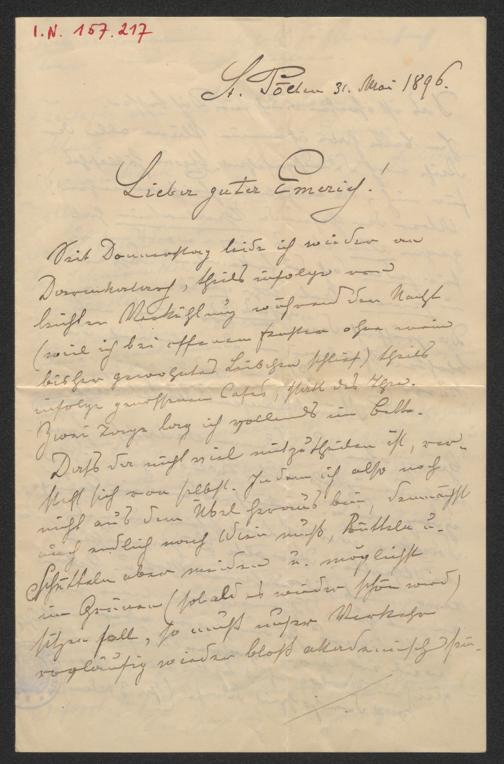 I.N. 157.217
St. Pölten 31. Mai 1896.
Lieber guter Emerich!
Seit Donnerstag leide ich wieder an
Darmkatarrh, theils infolge von
leichter Verkühlung während der Nacht
(weil ich bei offenem Fenster ohne mein
bisher gewohntes Leibchen schlief) theils
infolge genossenen Cafés, statt des Thee.
Zwei Tage lag ich vollends im Bette.
Dass da nicht viel mitzutheilen ist, ver-
steht sich von selbst. Indem ich also noch
nicht aus dem Übel heraus bin, demnächst
auch endlich nach Wien muß, Rütteln u.
Schütteln aber meiden u. möglichst
im Grünen (sobald es wieder schön wird)
sitzen soll, so muß unser Verkehr
vorläufig wieder bloß akademisch